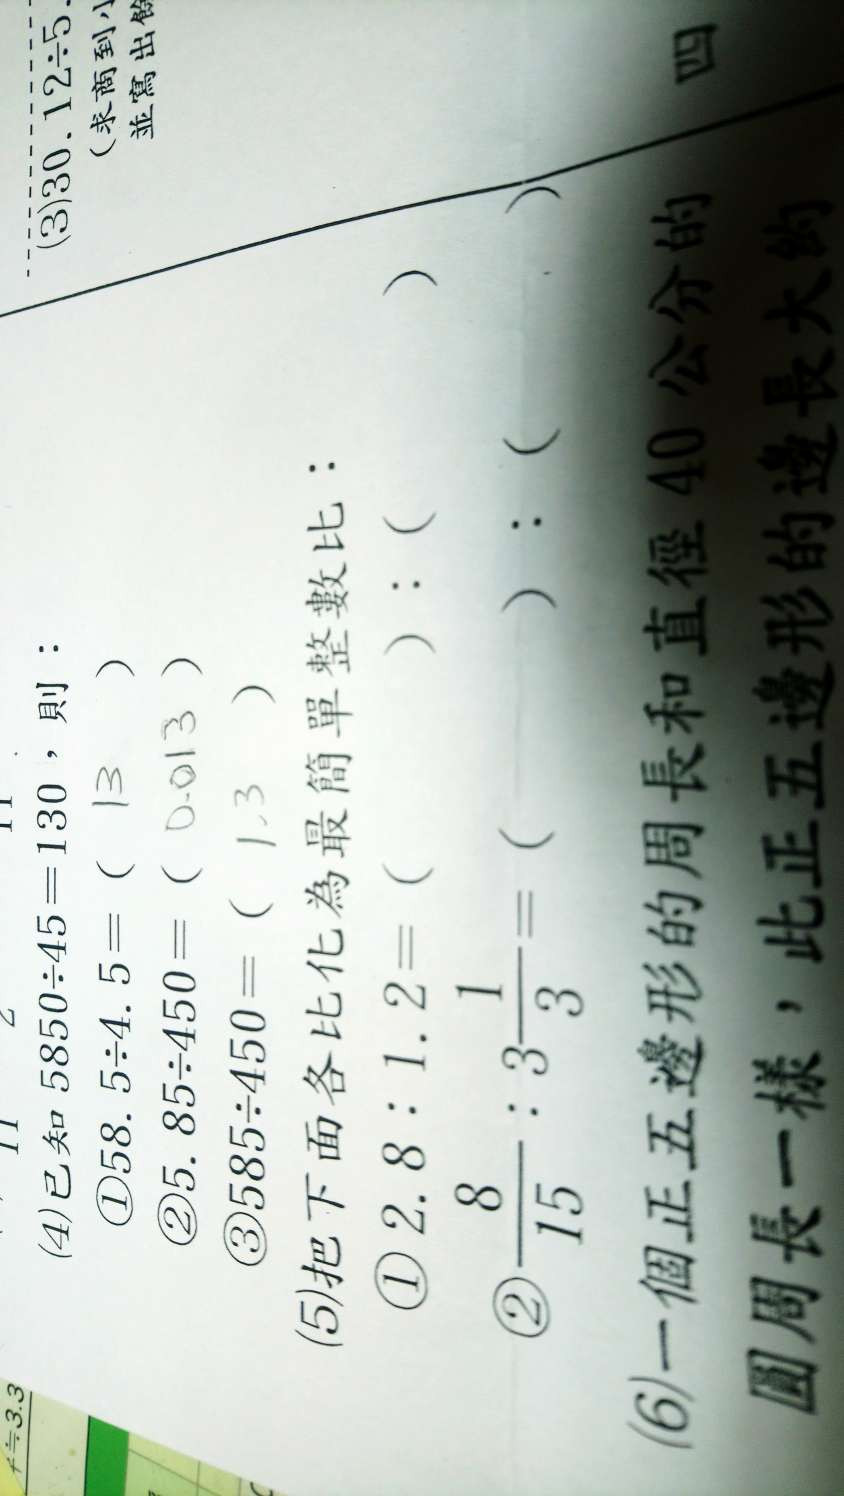 (4)已知 5850÷45=130，則：
①58.5÷4.5=( 13 )
②5.85÷450=( 0.013 )
③585÷450=( 1.3 )
(5)把下面各比化為最簡單整數比：
①2.8：1.2=( )：( )
②8/15：3 1/3=( )：( )
(6)一個正五邊形的周長和直徑 40 公分的
圓周長一樣，此正五邊形的邊長大約
(3)30.12÷5.
(求商到小
並寫出餘
四